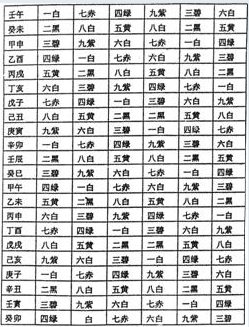 壬午 一白 七赤 四绿 九紫 三碧 六白
癸未 二黑 八白 五黄 八白 二黑 五黄
甲申 三碧 九紫 六白 七赤 一白 四绿
乙酉 四绿 一白 七赤 六白 九紫 三碧
丙戌 五黄 二黑 八白 五黄 八白 二黑
丁亥 六白 三碧 九紫 四绿 七赤 一白
戊子 七赤 四绿 一白 三碧 六白 九紫
己丑 八白 五黄 二黑 二黑 五黄 八白
庚寅 九紫 六白 三碧 一白 四绿 七赤
辛卯 一白 七赤 四绿 九紫 三碧 六白
壬辰 二黑 八白 五黄 八白 二黑 五黄
癸巳 三碧 九紫 六白 七赤 一白 四绿
甲午 四绿 一白 七赤 六白 九紫 三碧
乙未 五黄 二黑 八白 五黄 八白 二黑
丙申 六白 三碧 九紫 四绿 七赤 一白
丁酉 七赤 四绿 一白 三碧 六白 九紫
戊戌 八白 五黄 二黑 二黑 五黄 八白
己亥 九紫 六白 三碧 一白 四绿 七赤
庚子 一白 七赤 四绿 九紫 三碧 六白
辛丑 二黑 八白 五黄 八白 二黑 五黄
壬寅 三碧 九紫 六白 七赤 一白 四绿
癸卯 四绿 白 七赤 六白 九紫 三碧